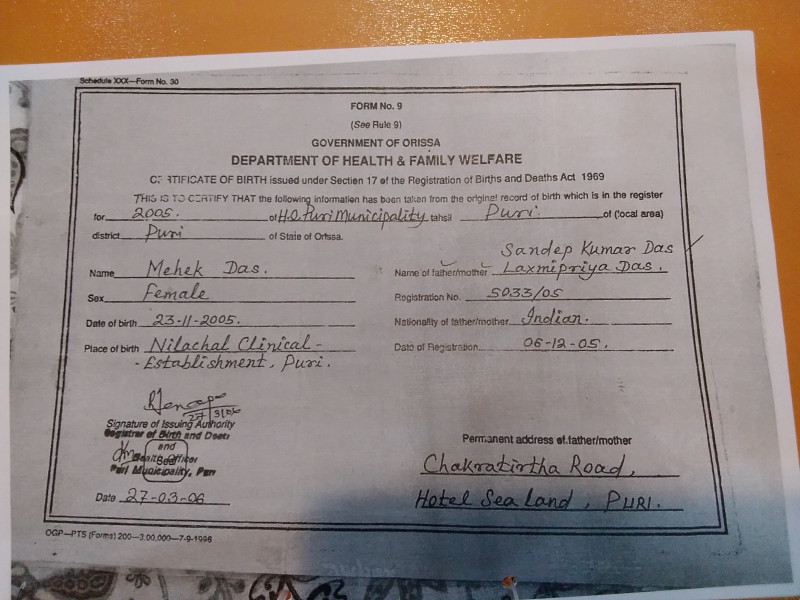 Schedule XXX—Form No. 30
FORM No. 9
(See Rule 9)
GOVERNMENT OF ORISSA
DEPARTMENT OF HEALTH & FAMILY WELFARE
CERTIFICATE OF BIRTH issued under Section 17 of the Registration of Births and Deaths Act 1969
THIS IS TO CERTIFY THAT the following information has been taken from the original record of birth which is in the register
for 2005. of H.O. Puri Municipality tahsil Puri of (local area)
district Puri of State of Orissa.
Name Mehek Das.
Sex Female
Date of birth 23-11-2005.
Place of birth Nilachal Clinical -
- Establishment, Puri.
Sandep Kumar Das
Name of father/mother Laxmipriya Das.
Registration No. 5033/05
Nationality of father/mother Indian.
Date of Registration 06-12-05.
Signature of Issuing Authority
Registrar of Birth and Death
and
Health Officer
Seal
Puri Municipality, Puri
Date 27-03-06
Permanent address of father/mother
Chakratirtha Road,
Hotel Sea land, PURI.
OGP—PTS (Forms) 200—3,00,000—7-9-1996